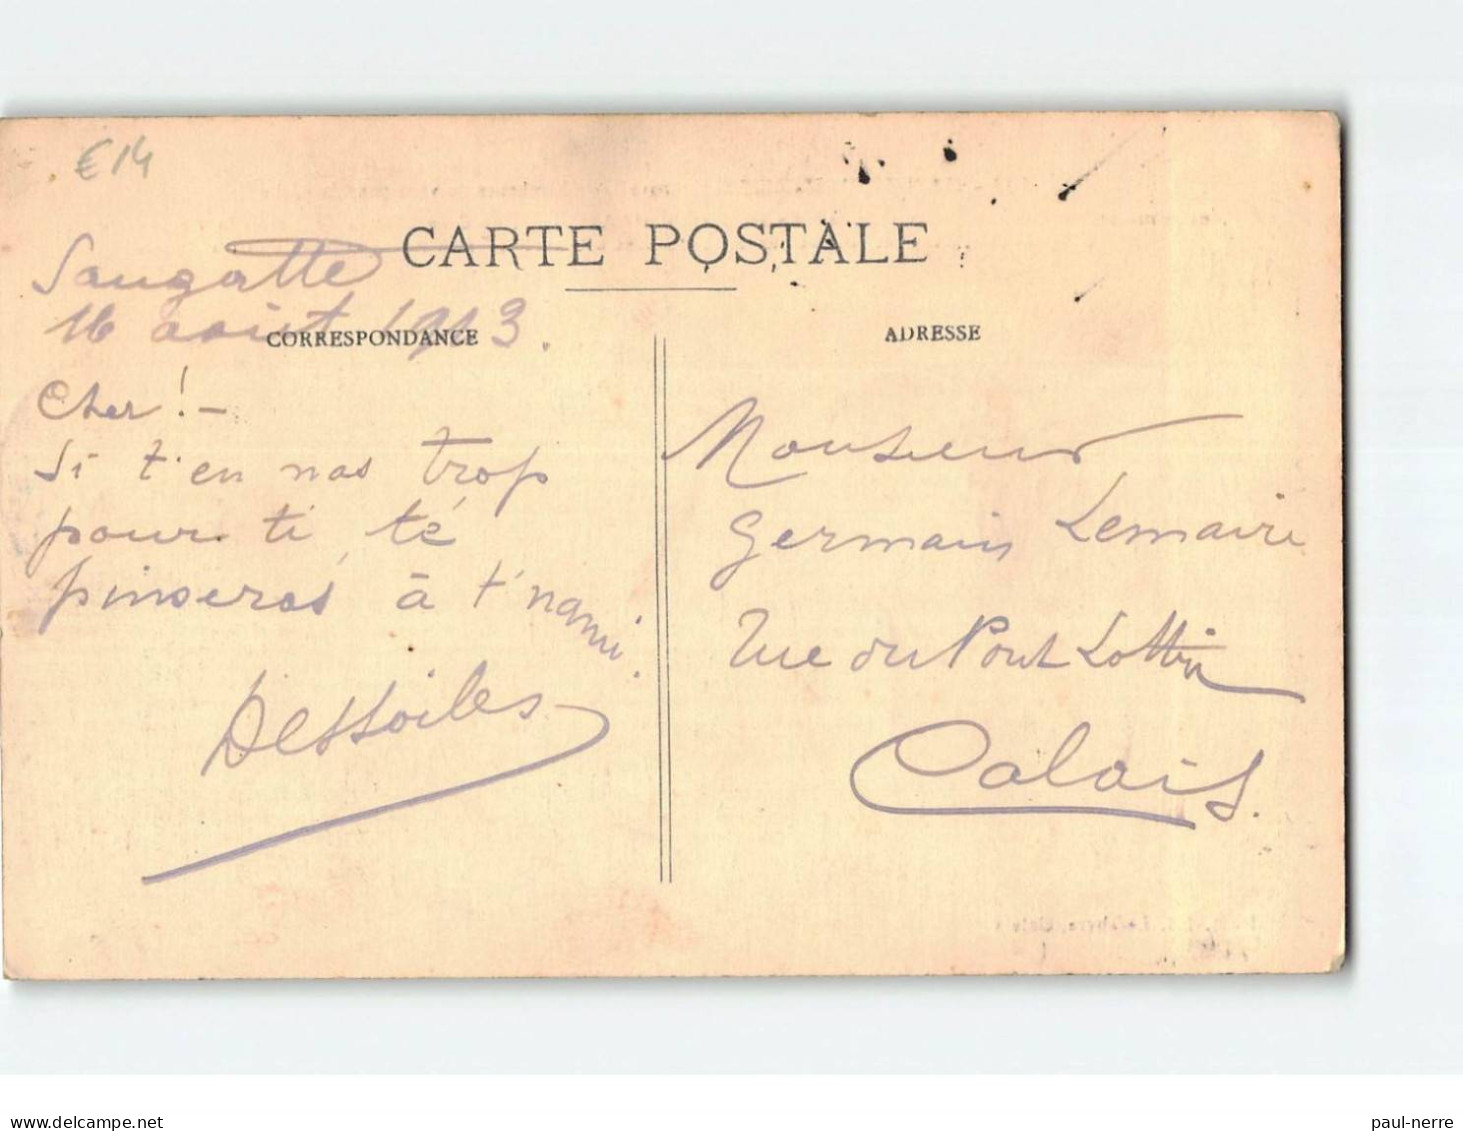 €14
CARTE POSTALE
Sangatte
16 août 1913.
CORRESPONDANCE
Cher ! -
Si t'en nas trop
pour ti, té
pinseras à t'nami.
Dessoiles
ADRESSE
Monsieur
Germain Lemaire
Rue du Pont Lottin
Calais.
paul-nerre
delcampe.net